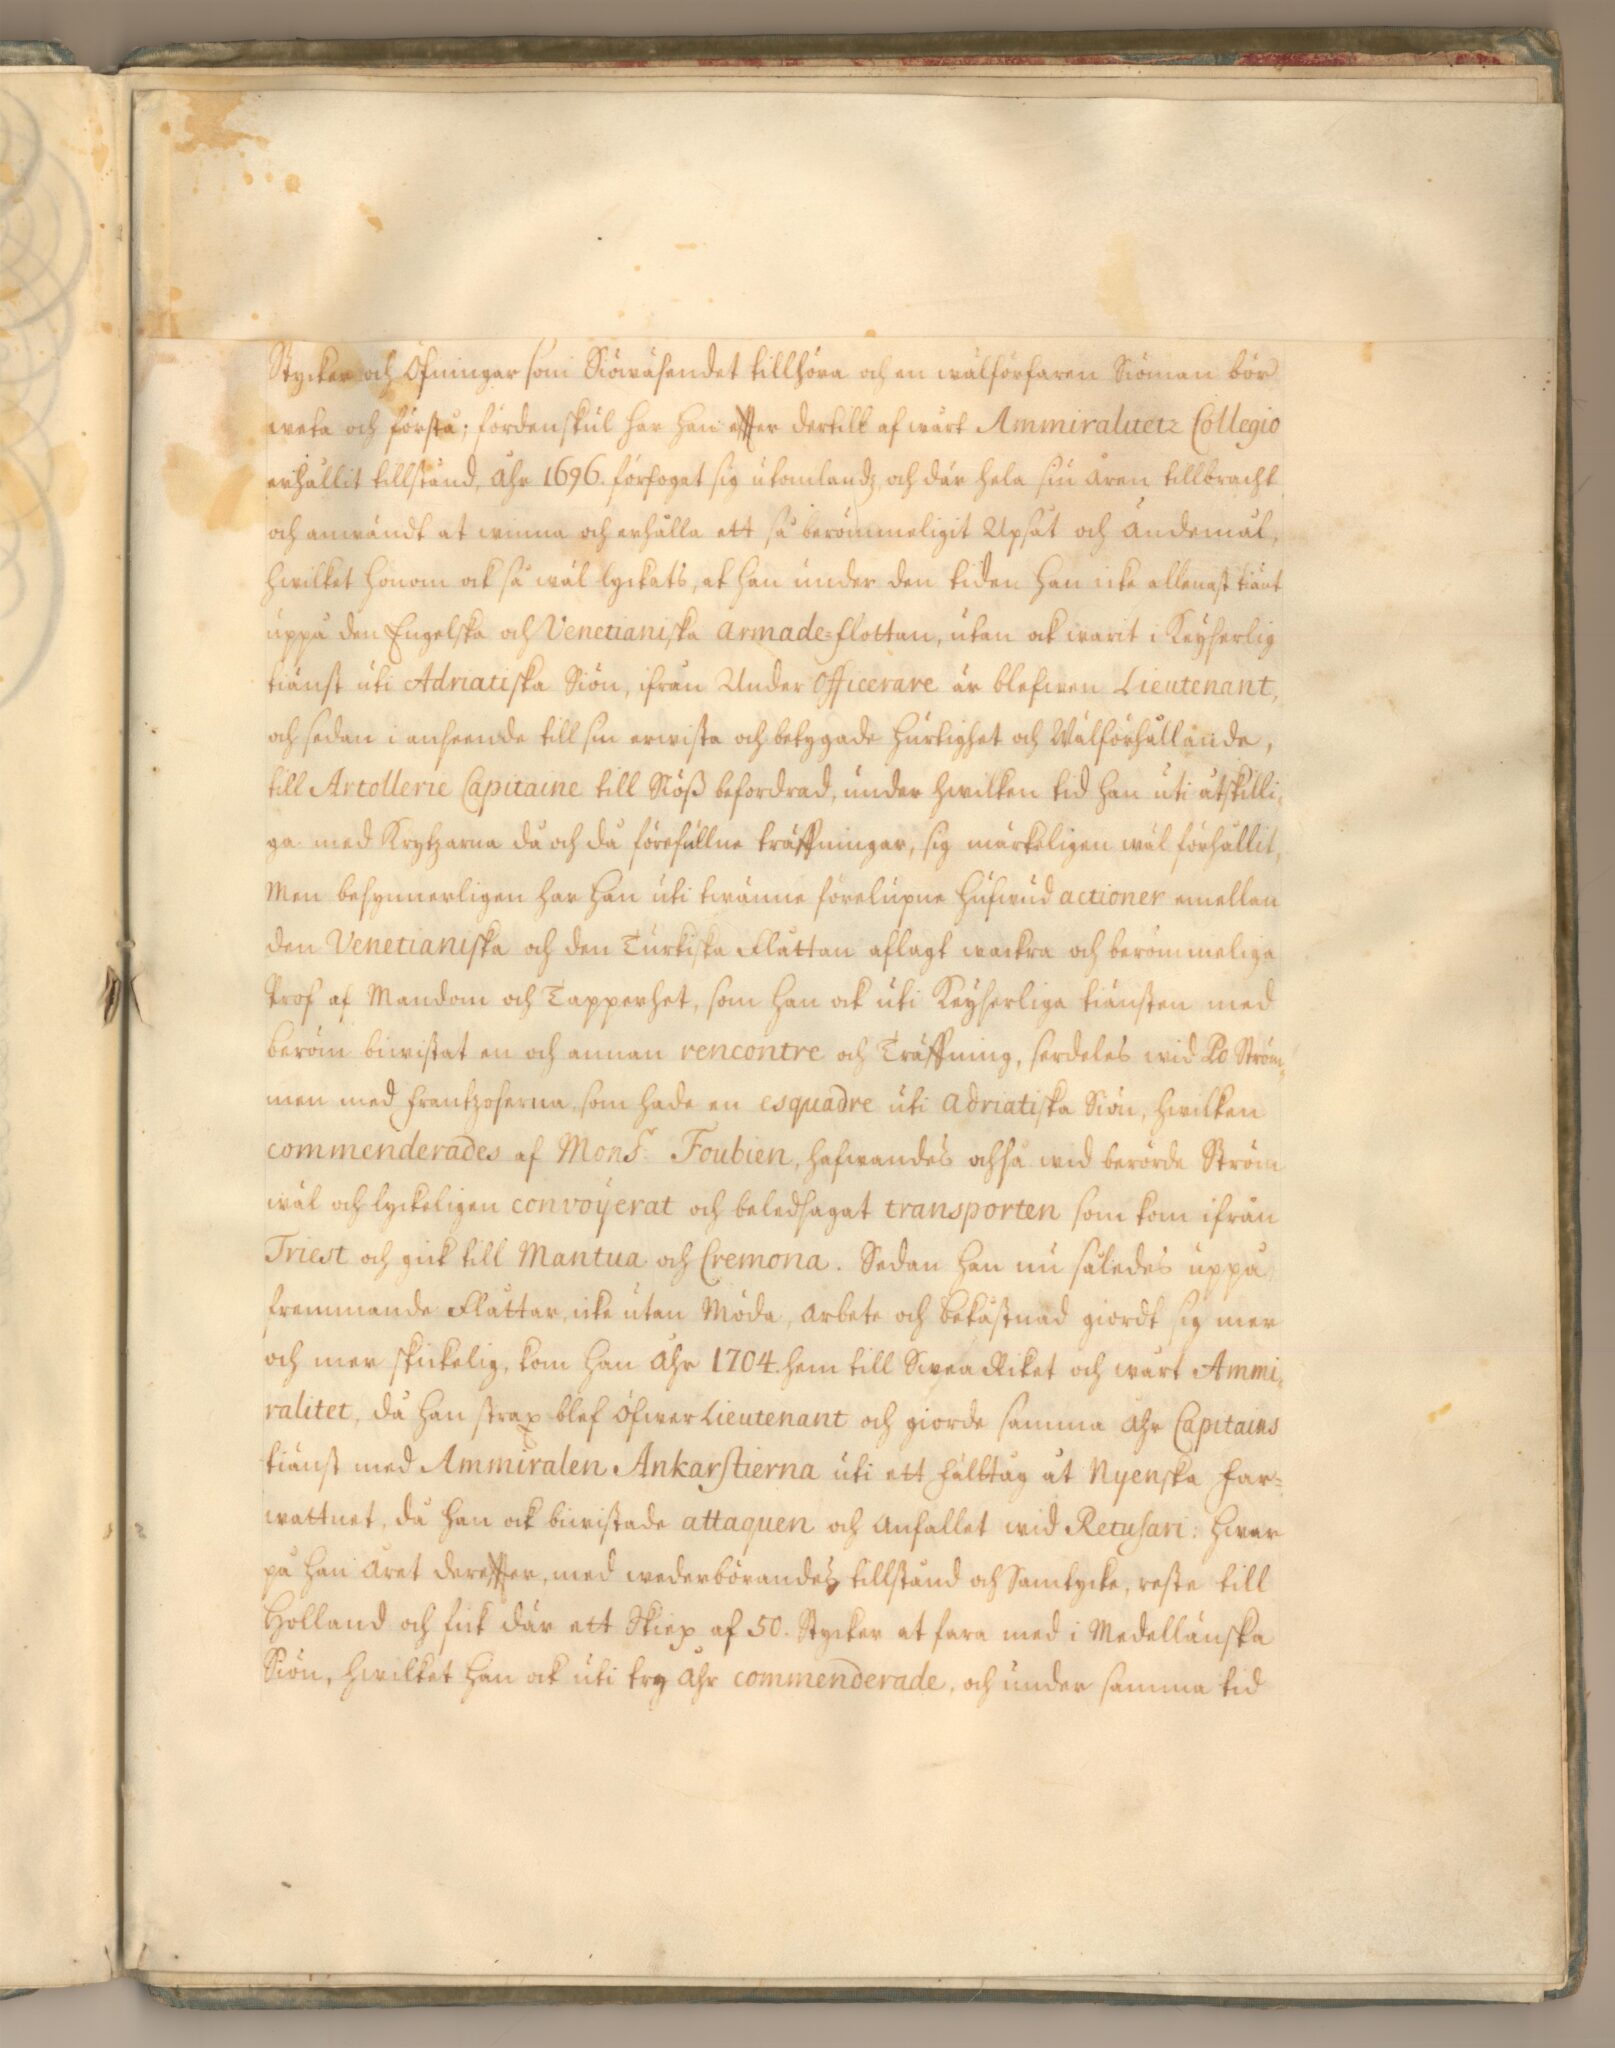 Stycker och Öfningar som Siöwäsendet tillhöra och en wälförfaren Siöman bör
weta och förstå; fördenskul har han effter dertill af wårt Ammiralitetz Collegio
erhållit tillstånd, Åhr 1696. förfogat sig utomlandz, och där hela siu åren tillbracht
och anwändt at winna och erhålla ett så berömmeligit Upsåt och Ändemål,
hwilket honom ock så wäl lyckats, at han under den tiden han icke allenast tiänt
uppå den Engelska och Venetianiska Armade=flottan, utan ock warit i Keyserlig
tiänst uti Adriatiska Siön, ifrån Under Officerare är blefwen Lieutenant,
och sedan i anseende till sin erwista och betygade hurtighet och Wälförhållande,
till Artollerie Capitaine till Siöß befordrad, under hwilken tid han uti åtskilli=
ga med Krytzarna då och då förefallne träffningar, sig märkeligen wäl förhållit,
Men besynnerligen har han uti twänne förelupne hufwud actioner emellan
den Venetianiska och den Turkiska Flåttan aflagt wackra och berömmeliga
Prof af Mandom och Tapperhet, som han ock uti Keyserliga tiänsten med
beröm biwistat en och annan rencontre och Träffning, serdeles wid Po Ström=
men med frantzoserna, som hade en esquadre uti Adriatiska Siön, hwilken
commenderades af Monsr. Foubien, hafwandes ochså wid berörde Ström
wäl och lyckeligen convoyerat och beledsagat transporten som kom ifrån
Triest och gick till Mantua och Cremona. Sedan han nu således uppå
fremmande Flåttar, icke utan Möda, Arbete och bekåstnad giordt sig mer
och mer skickelig, kom han Åhr 1704. hem till Swea Riket och wårt Ammi=
ralitet, då han strax blef Öfwer Lieutenant och giorde samma Åhr Capitains
tiänst med Ammiralen Ankarstierna uti ett fälttåg åt Nyenska far=
wattnet, då han ock biwistade attaquen och Anfallet wid Retusari: hwar
på han Året dereffter, med wederbörandes tillstånd och Samtycke, reste till
Holland och fick där ett Skiep af 50. Stycker at fara med i Medellänska
Siön, hwilket han ock uti try Åhr commenderade, och under samma tid